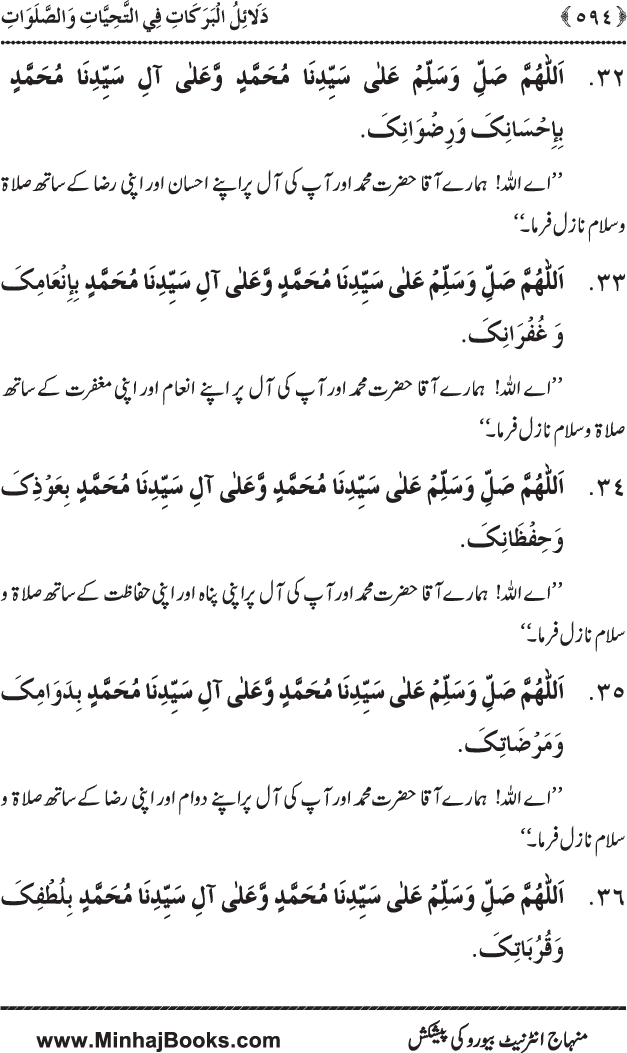 ﴿٥٩٤﴾ دَلَائِلُ الْبَرَكَاتِ فِي التَّحِيَّاتِ وَالصَّلَوَاتِ
٣٢. اَللّٰهُمَّ صَلِّ وَسَلِّمْ عَلٰی سَيِّدِنَا مُحَمَّدٍ وَّعَلٰی آلِ سَيِّدِنَا مُحَمَّدٍ
بِإِحْسَانِکَ وَرِضْوَانِکَ.
’’اے اللہ! ہمارے آقا حضرت محمد اور آپ کی آل پر اپنے احسان اور اپنی رضا کے ساتھ صلاۃ
وسلام نازل فرما۔‘‘
٣٣. اَللّٰهُمَّ صَلِّ وَسَلِّمْ عَلٰی سَيِّدِنَا مُحَمَّدٍ وَّعَلٰی آلِ سَيِّدِنَا مُحَمَّدٍ بِإِنْعَامِکَ
وَ غُفْرَانِکَ.
’’اے اللہ! ہمارے آقا حضرت محمد اور آپ کی آل پر اپنے انعام اور اپنی مغفرت کے ساتھ
صلاۃ وسلام نازل فرما۔‘‘
٣٤. اَللّٰهُمَّ صَلِّ وَسَلِّمْ عَلٰی سَيِّدِنَا مُحَمَّدٍ وَّعَلٰی آلِ سَيِّدِنَا مُحَمَّدٍ بِعَوْذِکَ
وَحِفْظَانِکَ.
’’اے اللہ! ہمارے آقا حضرت محمد اور آپ کی آل پر اپنی پناہ اور اپنی حفاظت کے ساتھ صلاۃ و
سلام نازل فرما۔‘‘
٣٥. اَللّٰهُمَّ صَلِّ وَسَلِّمْ عَلٰی سَيِّدِنَا مُحَمَّدٍ وَّعَلٰی آلِ سَيِّدِنَا مُحَمَّدٍ بِدَوَامِکَ
وَمَرْضَاتِکَ.
’’اے اللہ! ہمارے آقا حضرت محمد اور آپ کی آل پر اپنے دوام اور اپنی رضا کے ساتھ صلاۃ و
سلام نازل فرما۔‘‘
٣٦. اَللّٰهُمَّ صَلِّ وَسَلِّمْ عَلٰی سَيِّدِنَا مُحَمَّدٍ وَّعَلٰی آلِ سَيِّدِنَا مُحَمَّدٍ بِلُطْفِکَ
وَقُرُبَاتِکَ.
منہاج انٹرنیٹ بیورو کی پیشکش www.MinhajBooks.com